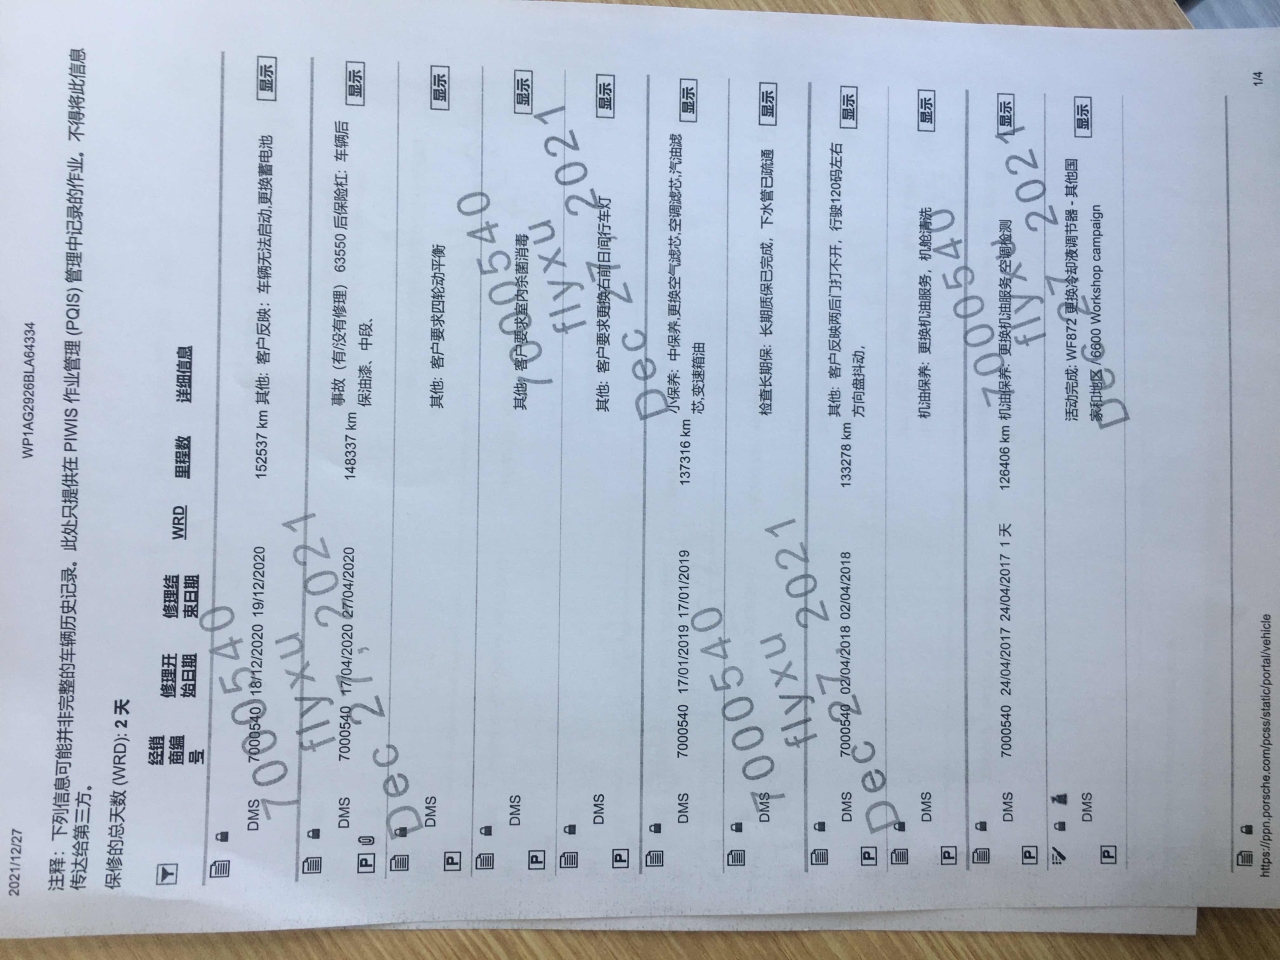 2021/12/27
WP1AG2926BLA64334
注释：下列信息可能并非完整的车辆历史记录。此处只提供在 PIWIS 作业管理 (PQIS) 管理中记录的作业。不得将此信息
传达给第三方。
保修的总天数 (WRD): 2 天
经销商编号 修理开始日期 修理结束日期 WRD 里程数 详细信息
DMS 7000540 18/12/2020 19/12/2020 152537 km 其他: 客户反映：车辆无法启动,更换蓄电池 显示
DMS 7000540 17/04/2020 27/04/2020 148337 km 事故（有/没有修理）63550 后保险杠: 车辆后 显示
保油漆、中段、
P DMS 其他: 客户要求四轮动平衡 显示
P DMS 其他: 客户要求室内杀菌消毒 显示
P DMS 其他: 客户要求更换右前日间行车灯 显示
P
DMS 7000540 17/01/2019 17/01/2019 137316 km 小保养: 中保养,更换空气滤芯,空调滤芯,汽油滤 显示
芯,变速箱油
DMS 检查长期保: 长期质保已完成，下水管已疏通 显示
DMS 7000540 02/04/2018 02/04/2018 133278 km 其他: 客户反映两后门打不开，行驶120码左右 显示
方向盘抖动，
P DMS 机油保养: 更换机油服务，机舱清洗 显示
P
DMS 7000540 24/04/2017 24/04/2017 1 天 126406 km 机油保养: 更换机油服务,空调检测 显示
P DMS 活动完成: WF872 更换冷却液调节器 - 其他国 显示
家和地区 / 6600 Workshop campaign
P
https://ppn.porsche.com/pcss/static/portal/vehicle
1/4
7000540
flyxu
Dec 27, 2021
7000540
flyxu
Dec 27 2021
7000540
flyxu
Dec 27 2021
7000540
flyxu
Dec 27 2021